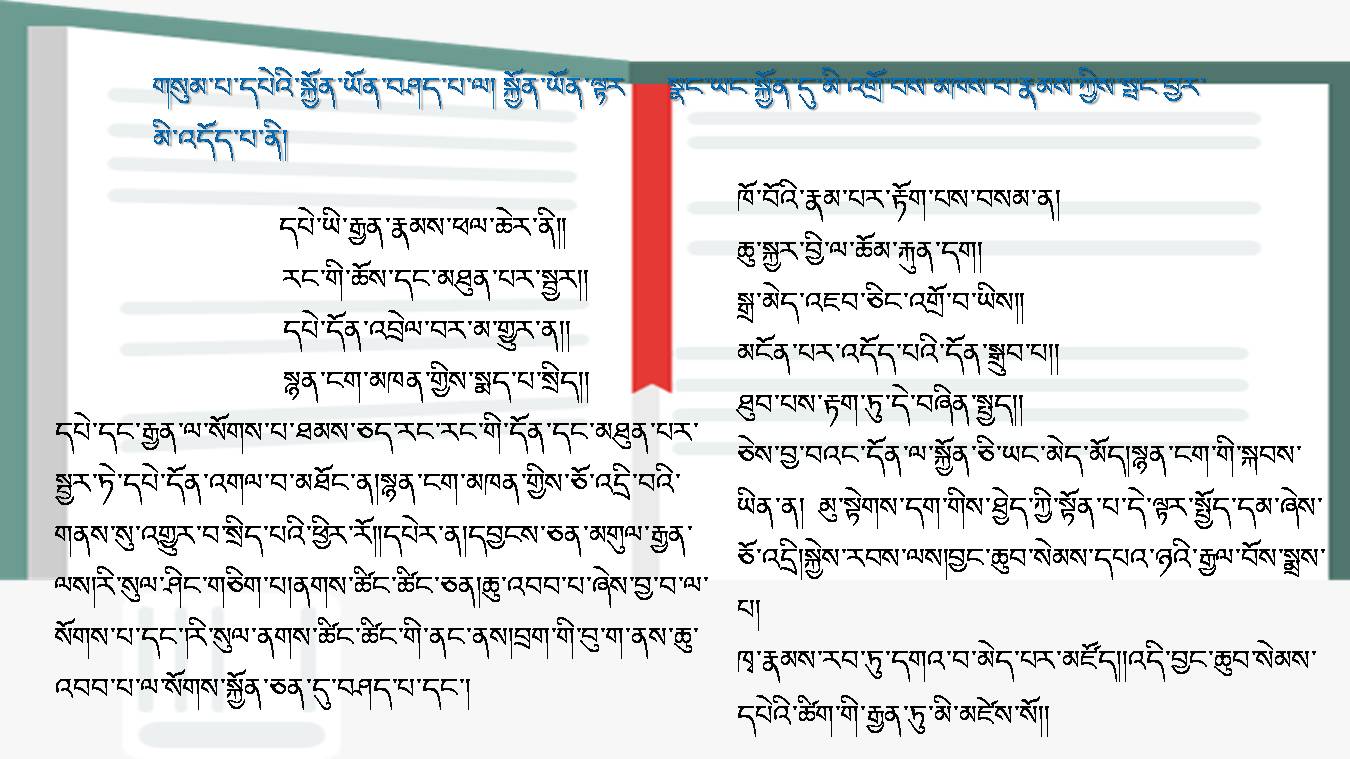 གསུམ་པ་དཔེའི་སྐྱོན་ཡོན་བཤད་པ་ལ། སྐྱོན་ཡོན་ལྟར་ སྣང་ཡང་སྐྱོན་དུ་མི་འགྲོ་བས་མཁས་པ་རྣམས་ཀྱིས་སྤང་བྱར་
མི་འདོད་པ་ནི།
དཔེ་ཡི་རྒྱན་རྣམས་ཕལ་ཆེར་ནི།།
རང་གི་ཆོས་དང་མཐུན་པར་སྦྱར།།
དཔེ་དོན་འབྲེལ་བར་མ་གྱུར་ན།།
སྙན་ངག་མཁན་གྱིས་སྨད་པ་སྲིད།།
དཔེ་དང་རྒྱན་ལ་སོགས་པ་ཐམས་ཅད་རང་རང་གི་དོན་དང་མཐུན་པར་
སྦྱར་ཏེ་དཔེ་དོན་འགལ་བ་མཐོང་ན།སྙན་ངག་མཁན་གྱིས་ཅོ་འདྲི་བའི་
གནས་སུ་འགྱུར་བ་སྲིད་པའི་ཕྱིར་རོ།།དཔེར་ན།དབྱངས་ཅན་མགུལ་རྒྱན་
ལས།རི་སུལ་ཤིང་གཅིག་པ།ནགས་ཚིང་ཚིང་ཅན།ཆུ་འབབ་པ་ཞེས་བྱ་བ་ལ་
སོགས་པ་དང་།རི་སུལ་ནགས་ཚིང་ཚིང་གི་ནང་ནས།བྲག་གི་བུ་ག་ནས་ཆུ་
འབབ་པ་ལ་སོགས་སྐྱོན་ཅན་དུ་བཤད་པ་དང་།
ཁོ་བོའི་རྣམ་པར་རྟོག་པས་བསམ་ན།
ཆུ་སྐྱར་བྱི་ལ་ཆོམ་རྐུན་དག།
སྒྲ་མེད་འཇབ་ཅིང་འགྲོ་བ་ཡིས།།
མངོན་པར་འདོད་པའི་དོན་སྒྲུབ་པ།།
ཐུབ་པས་རྟག་ཏུ་དེ་བཞིན་སྤྱད།།
ཅེས་བྱ་བའང་དོན་ལ་སྐྱོན་ཅི་ཡང་མེད་མོད།སྙན་ངག་གི་སྐབས་
ཡིན་ན། མུ་སྟེགས་དག་གིས་ཁྱེད་ཀྱི་སྟོན་པ་དེ་ལྟར་སྤྱོད་དམ་ཞེས་
ཅོ་འདྲི།སྐྱེས་རབས་ལས།བྱང་ཆུབ་སེམས་དཔའ་ཉའི་རྒྱལ་པོས་སྨྲས་
པ།
ཁྭ་རྣམས་རབ་ཏུ་དགའ་བ་མེད་པར་མཛོད།།འདི་བྱང་ཆུབ་སེམས་
དཔེའི་ཚིག་གི་རྒྱན་ཏུ་མི་མཛེས་སོ།།